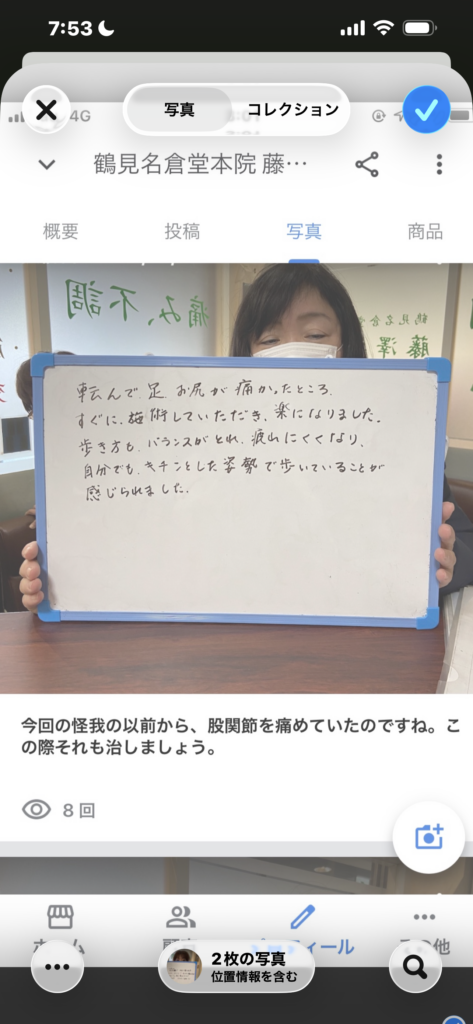 7:53
写真
コレクション
4G
鶴見名倉堂本院 藤…
概要
投稿
写真
商品
痛み、不調
鶴見名倉
藤澤
転んで足 お尻が痛かったところ、
すぐに、施術していただき、楽になりました。
歩き方も、バランスがとれ、疲れにくくなり、
自分でも、キチンとした姿勢で歩いていることが
感じられました。
今回の怪我の以前から、股関節を痛めていたのですね。こ
の際それも治しましょう。
8 回
2枚の写真
位置情報を含む